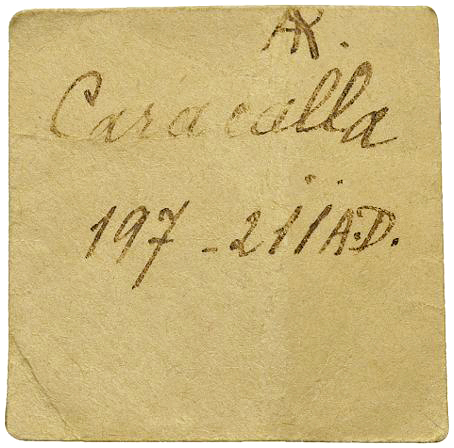 AR.
Caracalla
197 - 211 A.D.